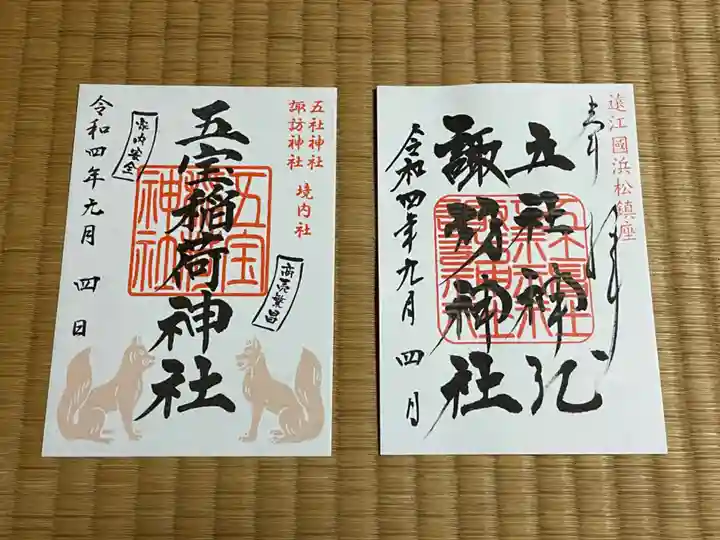 五社神社
諏訪神社 境内社
五宝稲荷神社
五宝
稲荷
神社
商売繁昌
家内安全
令和四年九月四日
遠江國浜松鎮座
奉拝
五社神社
諏訪神社
令和四年九月四日